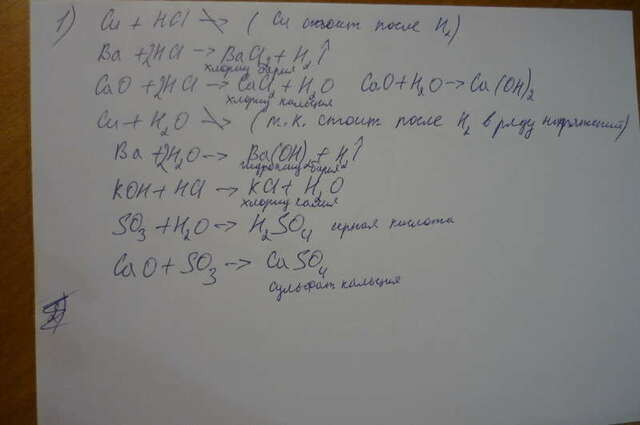 1) Cu + HCl ↛ ( Cu стоит после H₂)
Ba + 2HCl → BaCl₂ + H₂↑
хлорид бария
CaO + 2HCl → CaCl₂ + H₂O CaO + H₂O → Ca(OH)₂
хлорид кальция
Cu + H₂O ↛ ( т.к. стоит после H₂ в ряду напряжений)
Ba + 2H₂O → Ba(OH)₂ + H₂↑
гидроксид бария
KOH + HCl → KCl + H₂O
хлорид калия
SO₃ + H₂O → H₂SO₄ серная кислота
CaO + SO₃ → CaSO₄
сульфат кальция